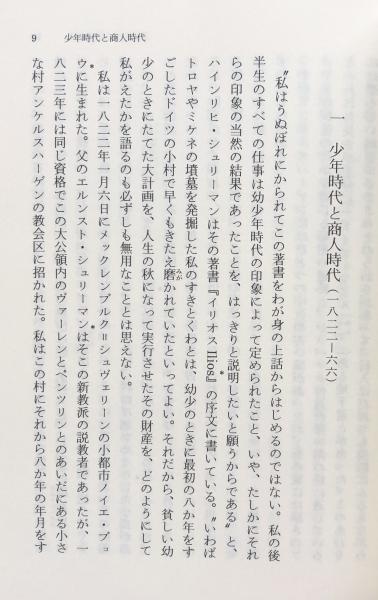 9　少年時代と商人時代
一　少年時代と商人時代（一八二二―六六）
〝私はうぬぼれにかられてこの著書をわが身の上話からはじめるのではない。私の後
半生のすべての仕事は幼少年時代の印象によって定められたこと、いや、たしかにそれ
らの印象の当然の結果であったことを、はっきりと説明したいと願うからである〟と、
ハインリヒ・シュリーマンはその著書『イリオス Ilios』の序文に書いている。〝いわば
トロヤやミケネの墳墓を発掘した私のすきとくわとは、幼少のときに最初の八か年をす
ごしたドイツの小村で早くもきたえ磨かれていたといってよい。それだから、貧しい幼
少のときにたてた大計画を、人生の秋になって実行させたその財産を、どのようにして
私がえたかを語るのも必ずしも無用なこととは思えない。
私は一八二二年一月六日にメックレンブルク＝シュヴェリーンの小都市ノイエ・ブコ
ウに生まれた。父のエルンスト・シュリーマンはそこの新教派の説教者であったが、一
八二三年には同じ資格でこの大公領内のヴァーレンとペンツリンとのあいだにある小さ
な村アンケルスハーゲンの教会区に招かれた。私はこの村にそれから八か年の年月をす